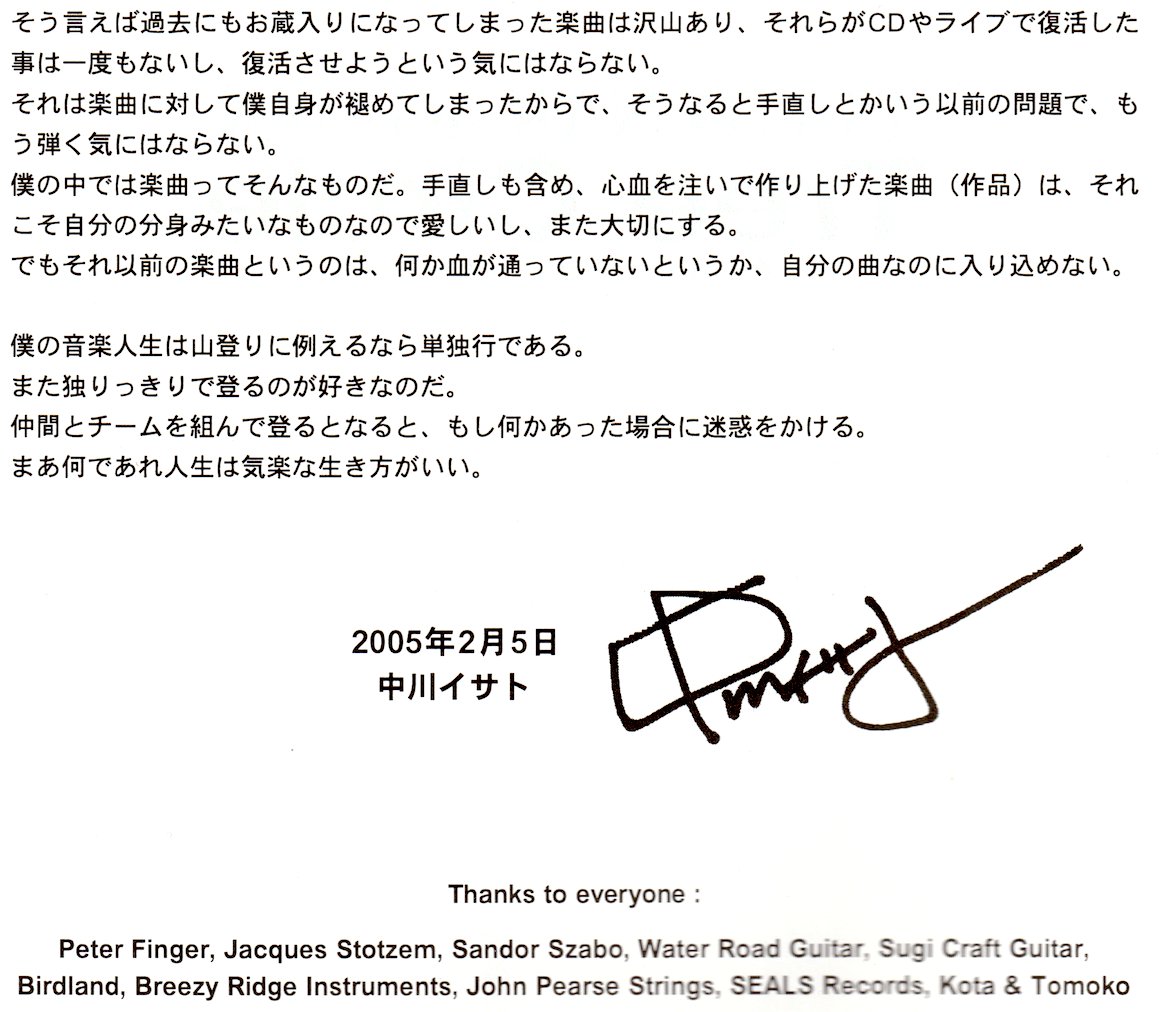 そう言えば過去にもお蔵入りになってしまった楽曲は沢山あり、それらがCDやライブで復活した
事は一度もないし、復活させようという気にはならない。
それは楽曲に対して僕自身が褪めてしまったからで、そうなると手直しとかいう以前の問題で、も
う弾く気にはならない。
僕の中では楽曲ってそんなものだ。手直しも含め、心血を注いで作り上げた楽曲（作品）は、それ
こそ自分の分身みたいなものなので愛しいし、また大切にする。
でもそれ以前の楽曲というのは、何か血が通っていないというか、自分の曲なのに入り込めない。
僕の音楽人生は山登りに例えるなら単独行である。
また独りっきりで登るのが好きなのだ。
仲間とチームを組んで登るとなると、もし何かあった場合に迷惑をかける。
まあ何であれ人生は気楽な生き方がいい。
2005年2月5日
中川イサト
Thanks to everyone :
Peter Finger, Jacques Stotzem, Sandor Szabo, Water Road Guitar, Sugi Craft Guitar,
Birdland, Breezy Ridge Instruments, John Pearse Strings, SEALS Records, Kota & Tomoko